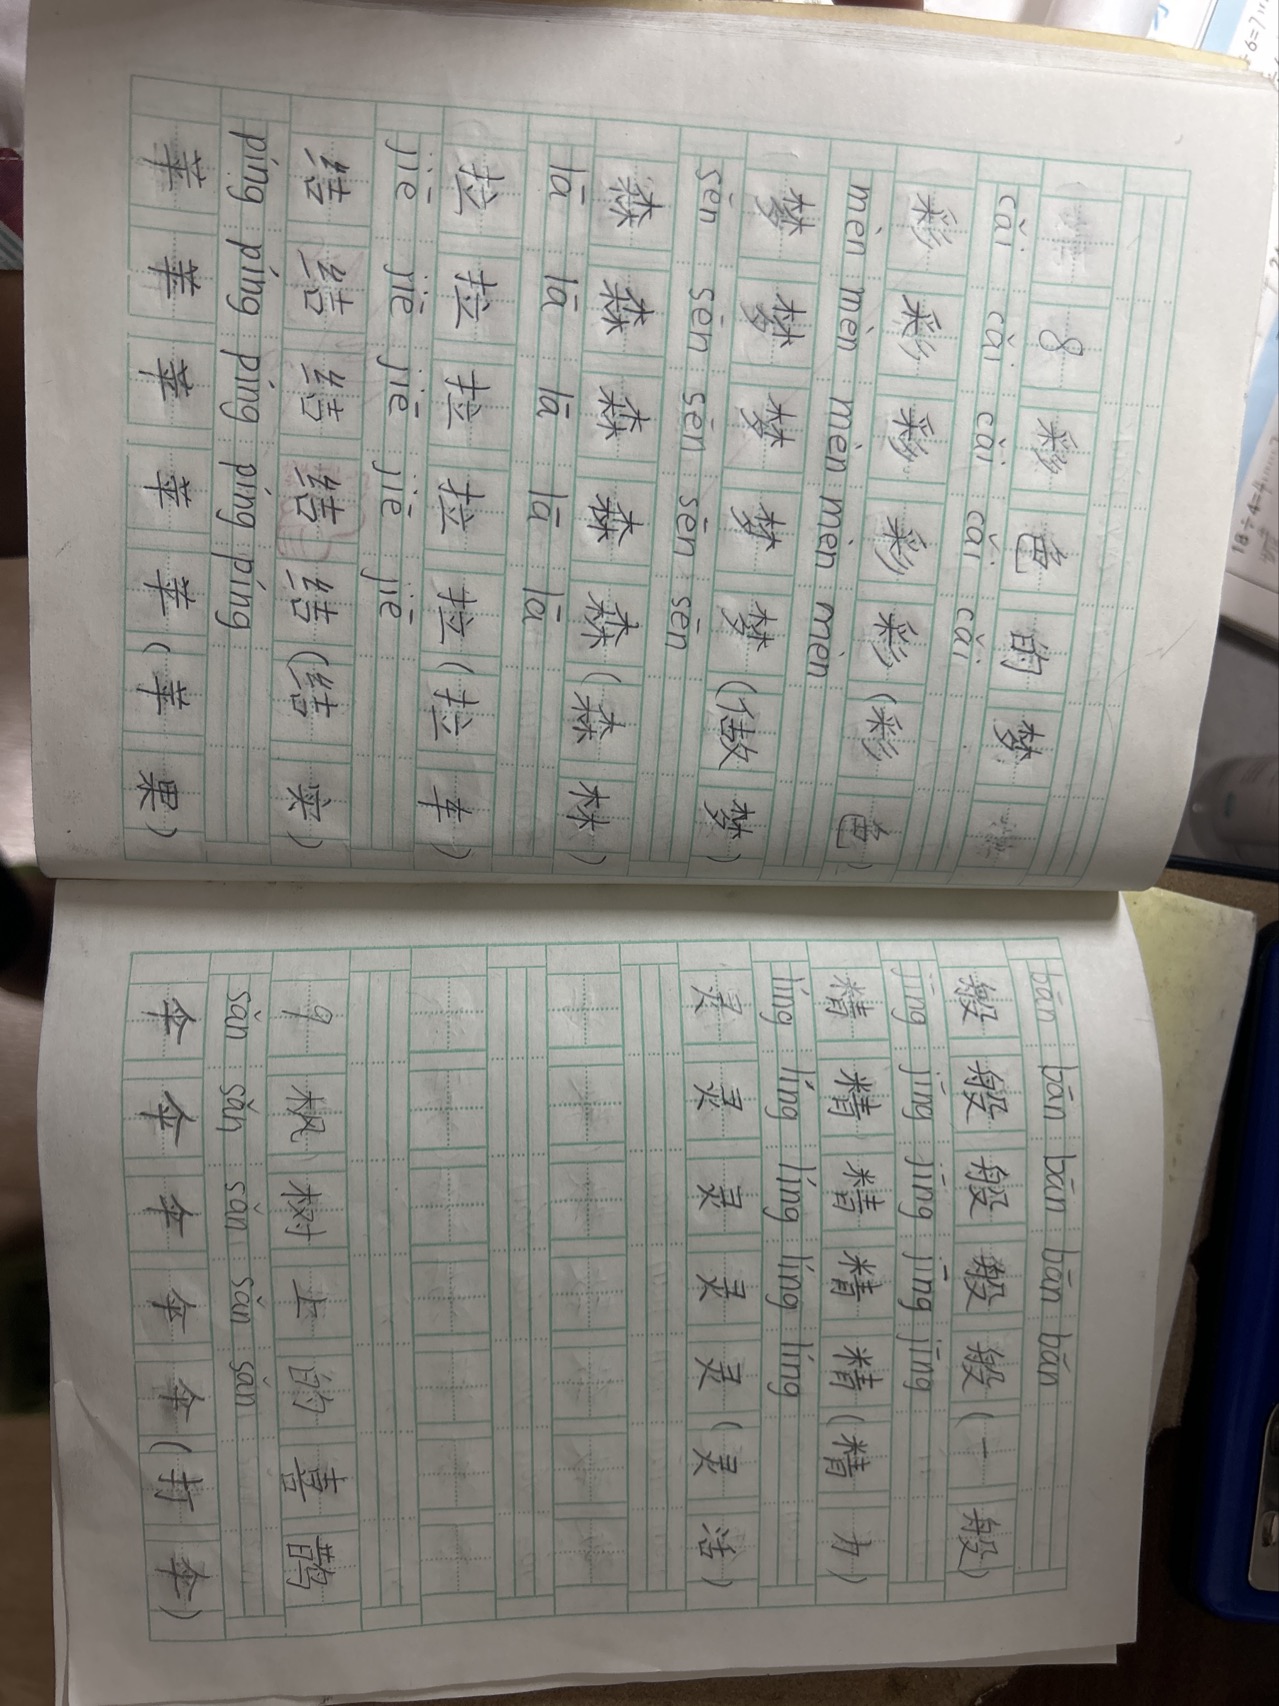 8 彩色的梦
cǎi cǎi cǎi cǎi cǎi
彩 彩 彩 彩 彩 (彩色)
mèn mèn mèn mèn mèn
梦 梦 梦 梦 梦 (做梦)
sēn sēn sēn sēn sēn
森 森 森 森 森 (森林)
lā lā lā lā lā
拉 拉 拉 拉 拉 (拉车)
jiē jiē jiē jiē jiē
结 结 结 结 结 (结实)
píng píng píng píng píng
苹 苹 苹 苹 苹 (苹果)
bān bān bān bān bān
般 般 般 般 般 (一般)
jīng jīng jīng jīng jīng
精 精 精 精 精 (精力)
líng líng líng líng líng
灵 灵 灵 灵 灵 (灵活)
9 枫树上的喜鹊
sǎn sǎn sǎn sǎn sǎn
伞 伞 伞 伞 伞 (打伞)